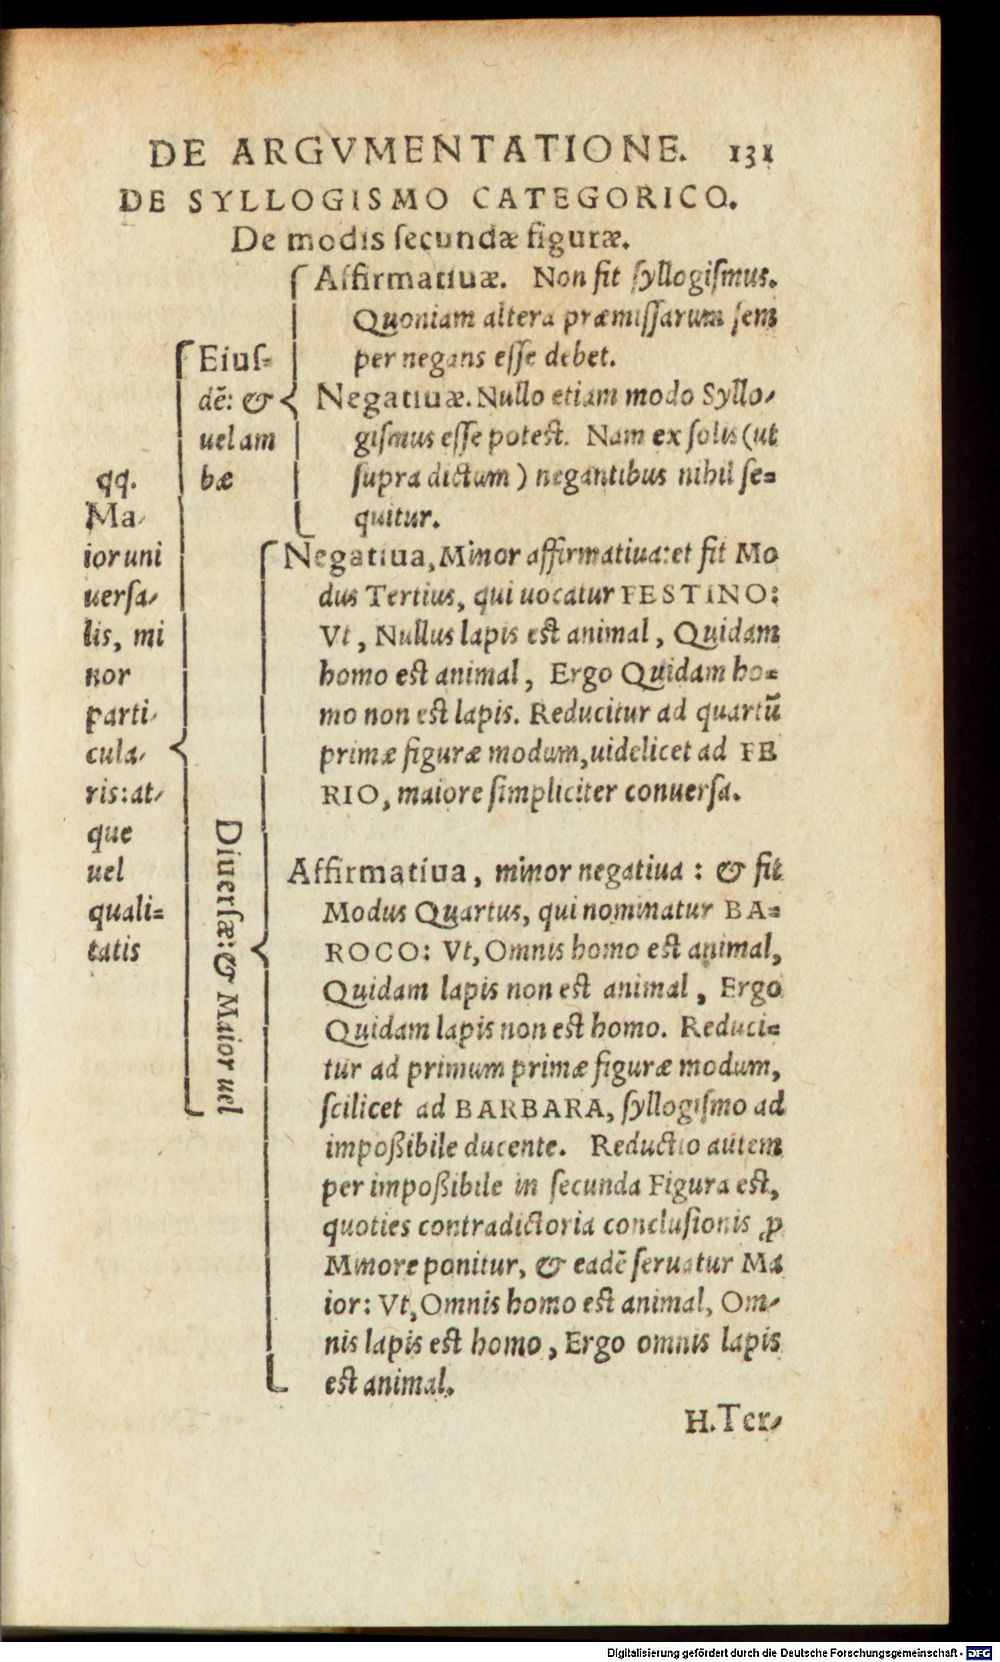 DE ARGVMENTATIONE. 131
DE SYLLOGISMO CATEGORICO.
De modis ſecundæ figuræ.
qq.
Ma-
ior uni
uerſa-
lis, mi
nor
parti-
cula-
ris: at-
que
uel
quali=
tatis
Eiuſ=
dē: &
uel am
bæ
Affirmatiuæ. Non fit ſyllogiſmus.
Quoniam altera præmiſſarum ſem
per negans eſſe debet.
Negatiuæ. Nullo etiam modo Syllo-
giſmus eſſe poteſt. Nam ex ſolis (ut
ſupra dictum) negantibus nihil ſe=
quitur.
Diuerſæ: & Maior uel
Negatiua, Minor affirmatiua: et fit Mo
dus Tertius, qui uocatur FESTINO:
Vt, Nullus lapis eſt animal, Quidam
homo eſt animal, Ergo Quidam ho=
mo non eſt lapis. Reducitur ad quartū
primæ figuræ modum, uidelicet ad FE
RIO, maiore ſimpliciter conuerſa.
Affirmatiua, minor negatiua: & fit
Modus Quartus, qui nominatur BA=
ROCO: Vt, Omnis homo eſt animal,
Quidam lapis non eſt animal, Ergo
Quidam lapis non eſt homo. Reduci=
tur ad primum primæ figuræ modum,
ſcilicet ad BARBARA, ſyllogiſmo ad
impoßibile ducente. Reductio autem
per impoßibile in ſecunda Figura eſt,
quoties contradictoria concluſionis ꝓ
Minore ponitur, & eadē ſeruatur Ma
ior: Vt, Omnis homo eſt animal, Om-
nis lapis eſt homo, Ergo omnis lapis
eſt animal.
H. Ter-
Digitalisierung gefördert durch die Deutsche Forschungsgemeinschaft - DFG